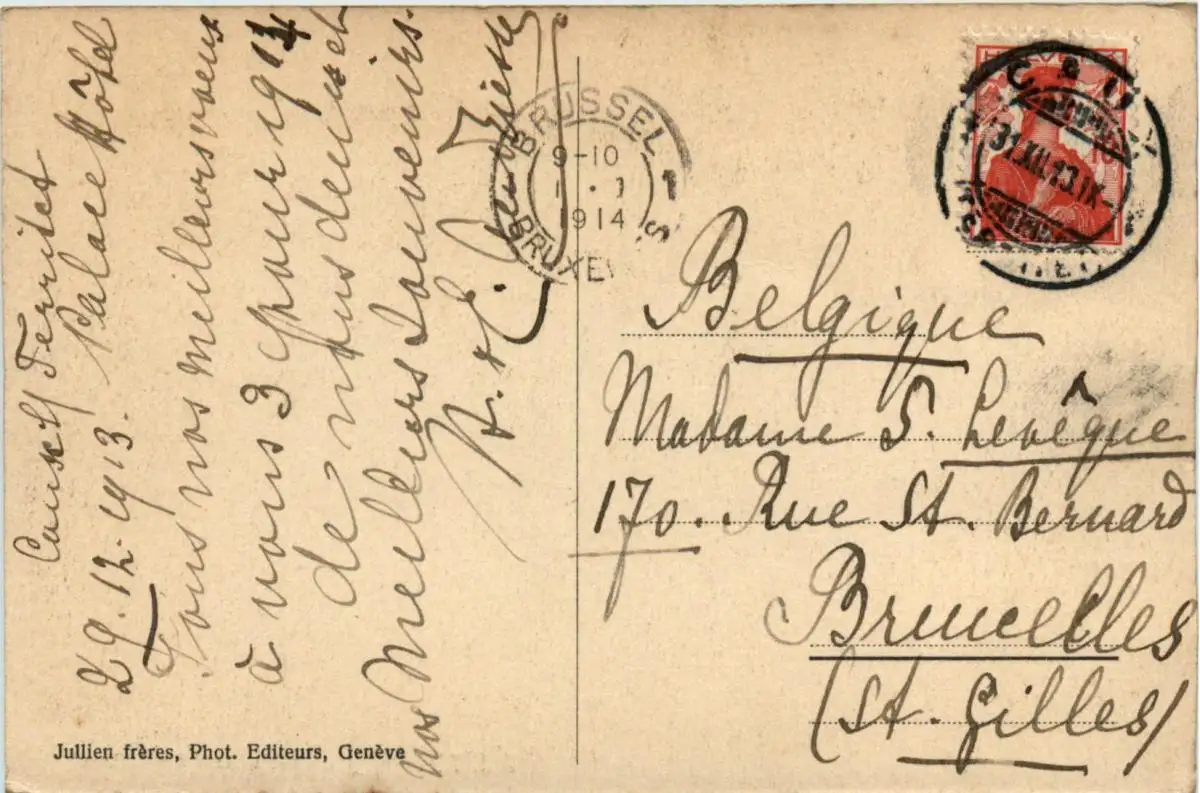 Caux s/ Territet
Palace Hôtel
29.12.1913.
Tous nos meilleurs voeux
à vous 3 pour 1914
de nous deux et
nos Meilleurs Souvenirs.
BRUSSEL 1
9-10
1914
BRUXE S
31.XII.13.IX
Belgique
Madame S. Levêque
170. Rue St. Bernard
Bruxelles
(St. Gilles)
Jullien frères, Phot. Editeurs, Genève